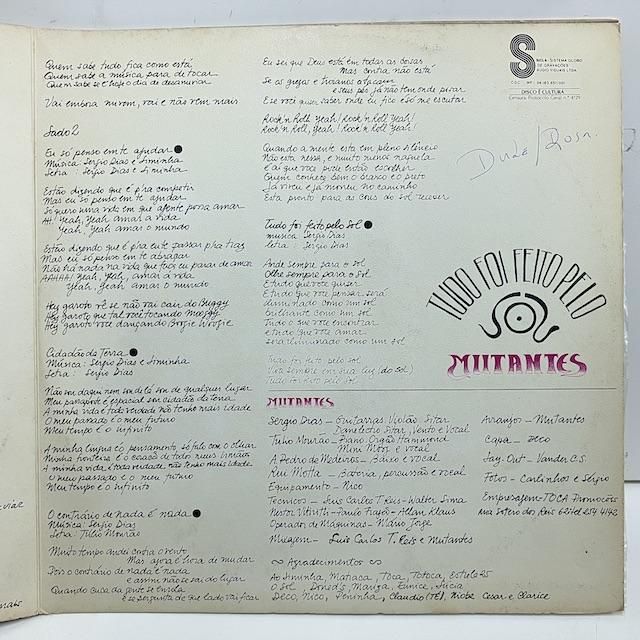 Quem sabe tudo fica como está
Quem sabe a música para de tocar
Quem sabe se é hoje o dia de desarrumar
Vai embora nuvem, vai e não vem mais
Lado 2
Eu só penso em te ajudar
Música: Sergio Dias e Liminha
Letra : Sergio Dias e Liminha
Estão dizendo que é pra competir
Mas eu só penso em te ajudar
Só quero uma vida em que a gente possa amar
Ah! Yeah, Yeah amar a vida
Yeah, Yeah amar o mundo
Estão dizendo que é pra eu te passar pra trás
Mas eu só penso em te abraçar
Não há nada na vida que faça eu parar de amar
AAAHA! Yeah, Yeah, amar a vida
Yeah, Yeah, amar o mundo
Hey garoto vê se não vai cair do Buggy
Hey garoto que tal você tocando Moogy
Hey garoto você dançando Boogie Woogie
Cidadão da Terra
Música: Sergio Dias e Liminha
Letra: Sergio Dias
Não sou daqui nem sou de lá sou de qualquer lugar
Meu passaporte é espacial sou cidadão da terra
A minha vida é toda verdade não tenho mais idade
O meu passado é o meu futuro
Meu tempo é o infinito
A minha língua é o pensamento só falo com o olhar
Minha fronteira é o coração de todos meus irmãos
A minha vida é toda verdade não tenho mais idade
O meu passado é o meu futuro
Meu tempo é o infinito
O contrário de nada é nada
Música: Sergio Dias
Letra: Tulio Mourão
Muito tempo andei contra o vento
Mas agora é hora de mudar
Pois o contrário de nada é nada
e assim não se sai do lugar
Quando cuca da gente se enrola
e se pergunta de que lado vai ficar
Eu sei que Deus está em todas as coisas
Mas contra não está
Se os gregos e troianos atacam
e seus pés já não tem onde pisar
E se você quiser saber onde eu fico é só me escutar
Rock'n Roll Yeah! Rock'n Roll Yeah!
Rock'n Roll, Yeah! Rock'n Roll Yeah!
Quando a mente está em pleno silêncio
Não está nessa, e muito menos naquela
é aí que você pode então escolher
Quem conhece bem o branco e o preto
Já viveu e já morreu no caminho
Está pronto para as cores do sol receber
Tudo foi feito pelo Sol
música: Sergio Dias
letra : Sergio Dias
Ande sempre para o sol
Olhe sempre para o sol
E tudo que você quiser
E tudo que você pensar será
iluminado como um sol
brilhante como um sol
Tudo o que você encontrar
e tudo que você amar
será iluminado como um sol
Tudo foi feito pelo sol
Viva sempre em sua luz (do sol)
Tudo foi feito pelo sol
S
SIGLA - SISTEMA GLOBO
DE GRAVAÇÕES
AUDIO VISUAIS LTDA.
DISCO É CULTURA
Dudé/Rosa.
TUDO FOI FEITO PELO
SOL
MUTANTES
MUTANTES
Sergio Dias - Guitarras: Violão, Sitar
Danelectro Sitar, Vento e Vocal
Tulio Mourão - Piano, Orgão Hammond
Mini Moog e Vocal
A. Pedro de Medeiros - Baixo e Vocal
Rui Motta - Bateria, percussão e vocal
Equipamento - Nico
Técnicos - Luis Carlos T. Reis - Walter Lima
Nestor Vitiritti - Paulo Frazão - Allan Klaus
Operador de Máquinas - Mario Jorge
Mixagem - Luis Carlos T. Reis e Mutantes
Arranjos - Mutantes
Capa - Zoca
Lay-Out - Vander C.S.
Fotos - Carlinhos e Sérgio
Empresagem - TOCA Promoções
Agradecimentos
Ao Liminha, Matiaca, Toca, Totoca, Estudio 25
O Sol, Lucia
Deco, Nico, Peninha, Claudio (TE), Niobe Cesar e Clarice